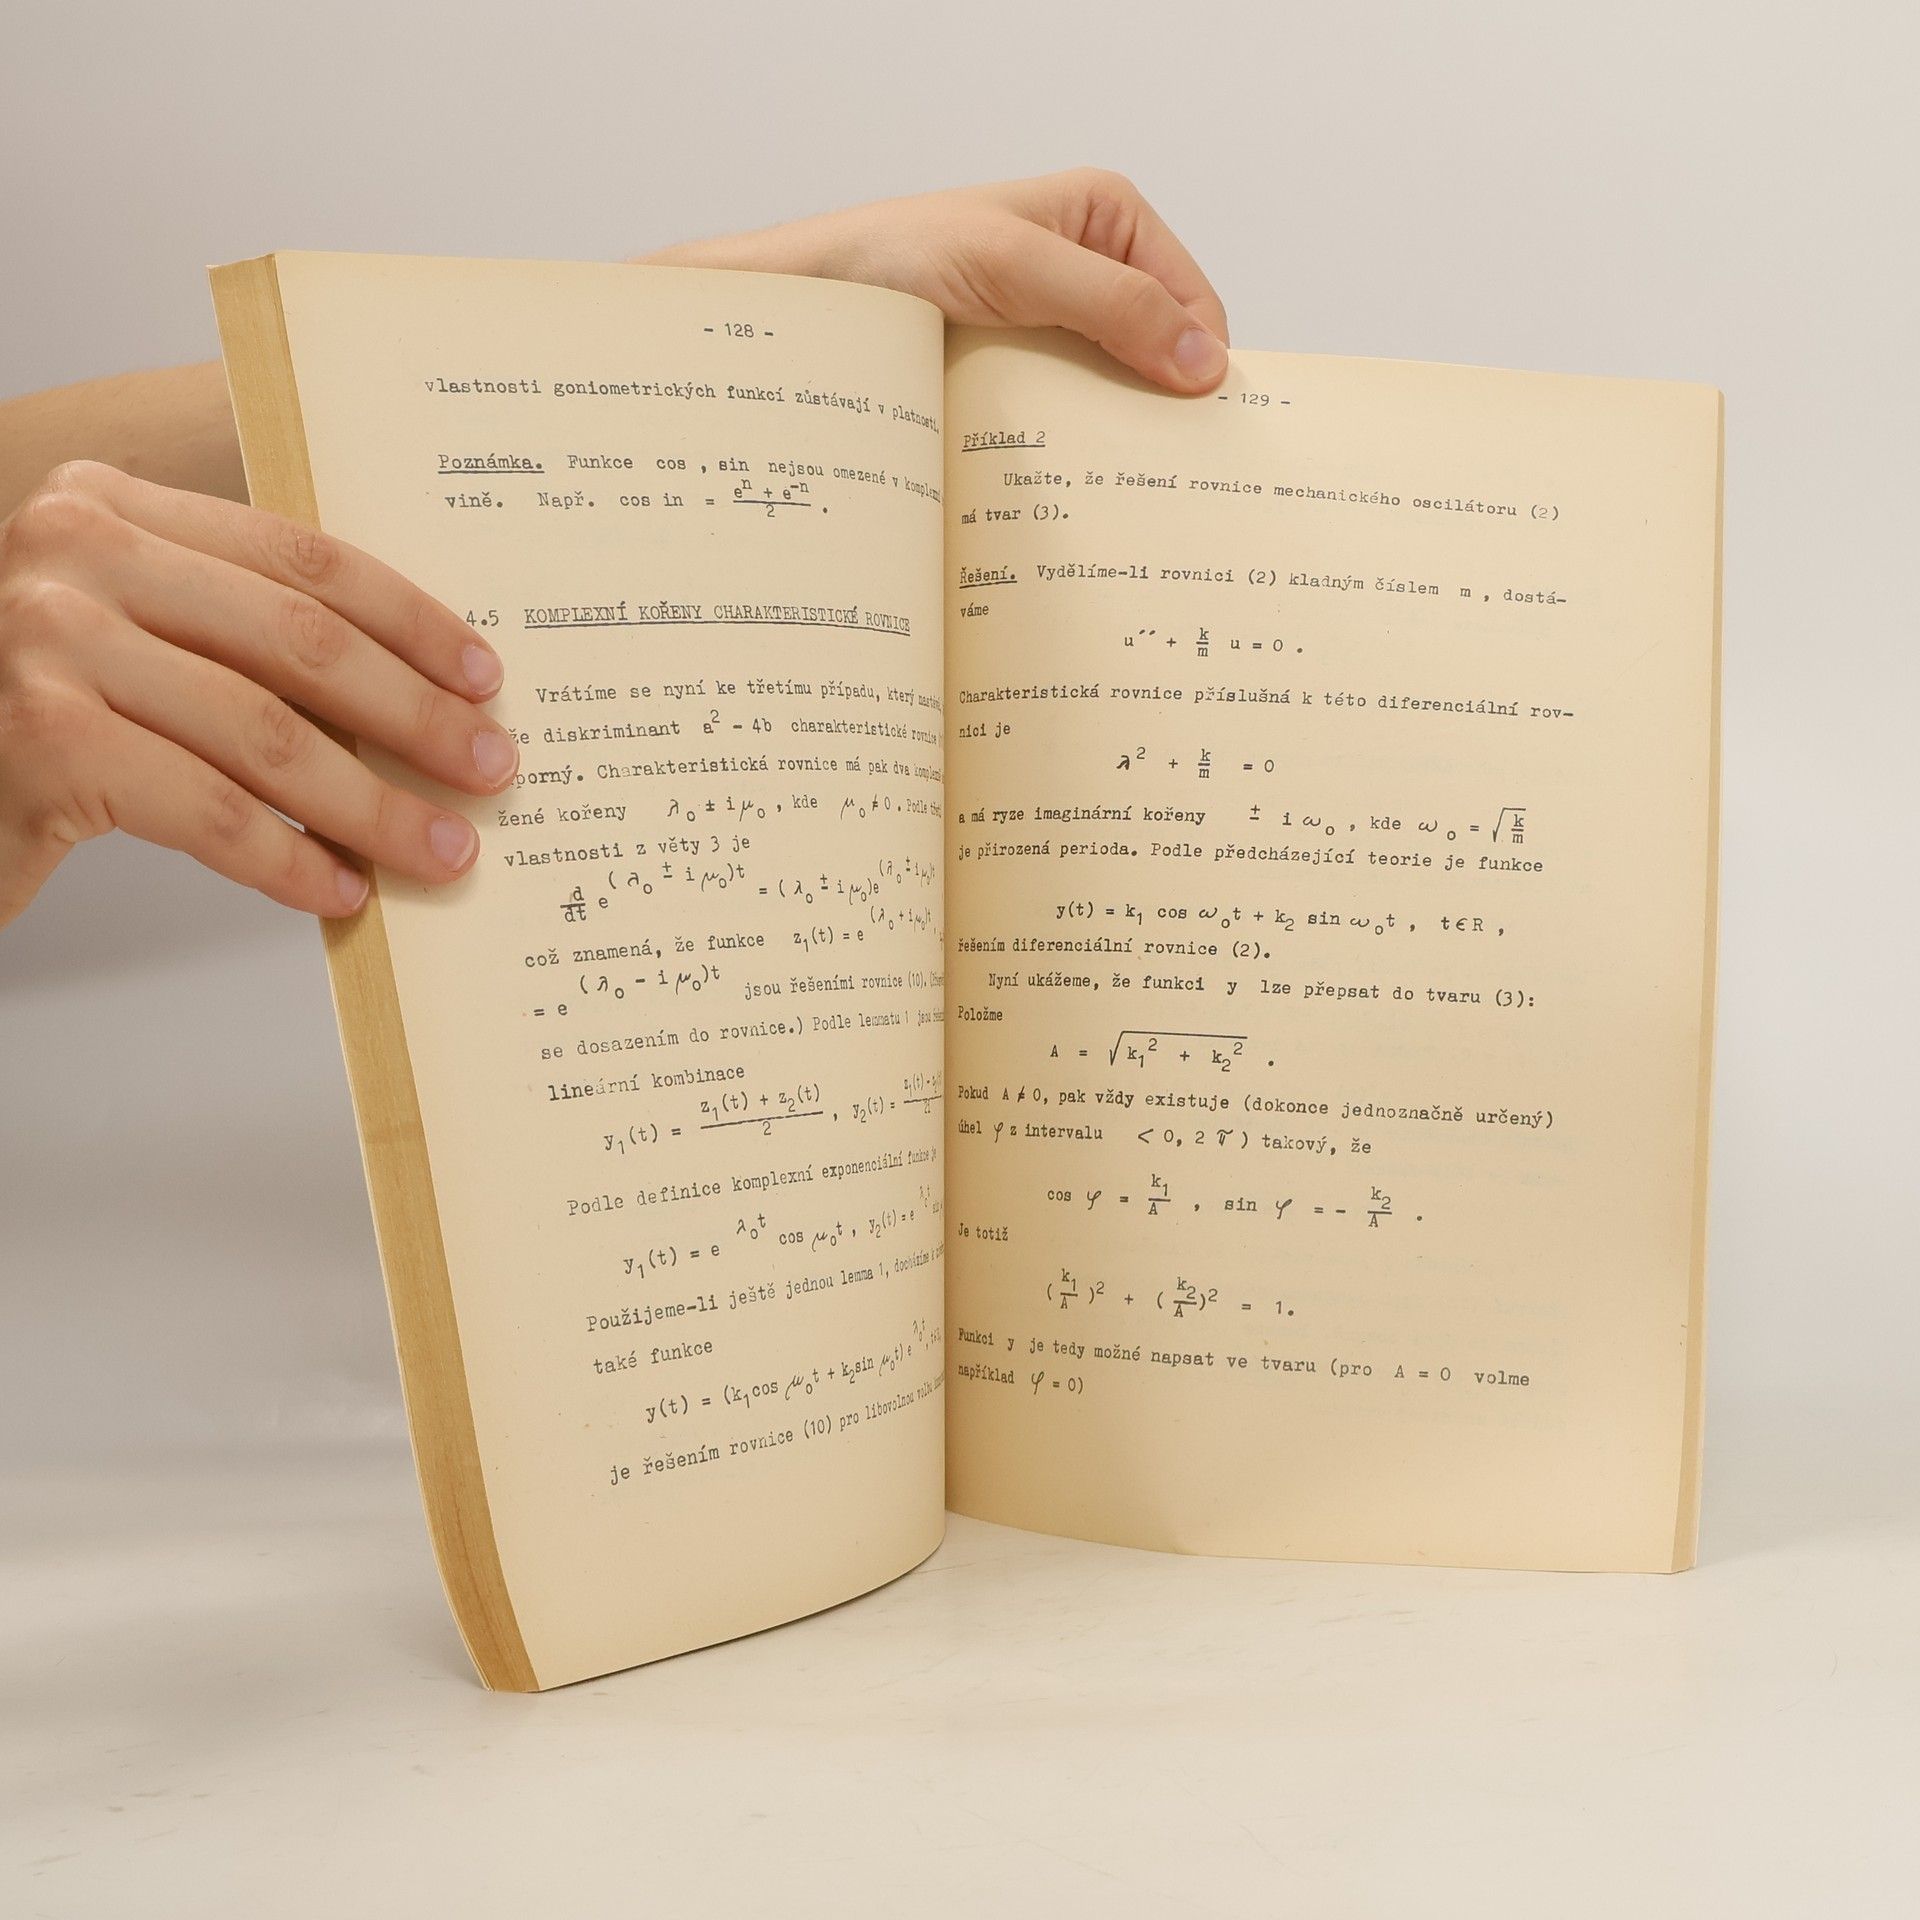 - 128 -
vlastnosti goniometrických funkcí zůstávají v platnosti.
Poznámka. Funkce cos , sin nejsou omezené v
vině. Např. cos in = \frac{e^n + e^{-n}}{2} .
4.5 KOMPLEXNÍ KOŘENY CHARAKTERISTICKÉ ROVNICE
Vrátíme se nyní ke třetímu případu, který
že diskriminant a² - 4b charakteristické rovnice
porný. Charakteristická rovnice má pak dva
žené kořeny λ₀ ± iμ₀ , kde μ₀ ≠ 0. Podle
vlastnosti z věty 3 je
\frac{d}{dt} e^{(λ₀ ± iμ₀)t} = (λ₀ ± iμ₀)e^{(λ₀ ± iμ₀)t}
což znamená, že funkce z₁(t) = e^{(λ₀ + iμ₀)t},
= e^{(λ₀ - iμ₀)t} jsou řešeními rovnice (10).
se dosazením do rovnice.) Podle lemmatu 1 jsou
lineární kombinace
y₁(t) = \frac{z₁(t) + z₂(t)}{2} , y₂(t) =
Podle definice komplexní exponenciální funkce je
y₁(t) = e^{λ₀t} cos μ₀t , y₂(t) = e^{λ₀t}
Použijeme-li ještě jednou lemma 1, docházíme k
také funkce
y(t) = (k₁cos μ₀t + k₂sin μ₀t) e^{λ₀t},
je řešením rovnice (10) pro libovolnou volbu
- 129 -
Příklad 2
Ukažte, že řešení rovnice mechanického oscilátoru (2)
má tvar (3).
Řešení. Vydělíme-li rovnici (2) kladným číslem m , dostá-
váme
u´´ + \frac{k}{m} u = 0 .
Charakteristická rovnice příslušná k této diferenciální rov-
nici je
λ² + \frac{k}{m} = 0
a má ryze imaginární kořeny ± iω₀ , kde ω₀ = \sqrt{\frac{k}{m}}
je přirozená perioda. Podle předcházející teorie je funkce
y(t) = k₁ cos ω₀t + k₂ sin ω₀t , t ∈ R ,
řešením diferenciální rovnice (2).
Nyní ukážeme, že funkci y lze přepsat do tvaru (3):
Položme
A = \sqrt{k₁² + k₂²} .
Pokud A ≠ 0, pak vždy existuje (dokonce jednoznačně určený)
úhel φ z intervalu < 0, 2π ) takový, že
cos φ = \frac{k₁}{A} , sin φ = - \frac{k₂}{A} .
Je totiž
(\frac{k₁}{A})² + (\frac{k₂}{A})² = 1.
Funkci y je tedy možné napsat ve tvaru (pro A = 0 volme
například φ = 0)